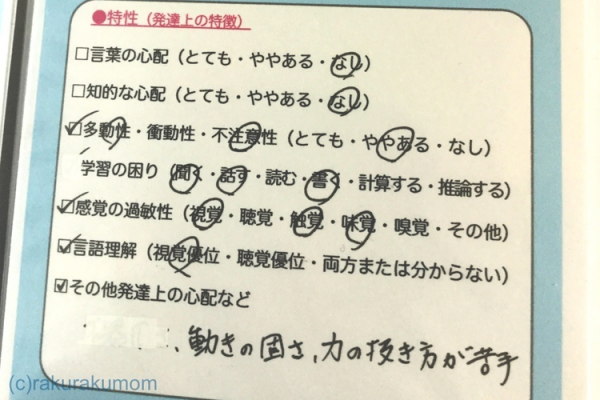 ●特性（発達上の特徴）
□言葉の心配（とても・ややある・なし）
□知的な心配（とても・ややある・なし）
☑多動性・衝動性・不注意性（とても・ややある・なし）
学習の困り（聞く・話す・読む・書く・計算する・推論する）
☑感覚の過敏性（視覚・聴覚・触覚・味覚・嗅覚・その他）
☑言語理解（視覚優位・聴覚優位・両方または分からない）
☑その他発達上の心配など
、動きの固さ、力の抜き方が苦手
(c)rakurakumom